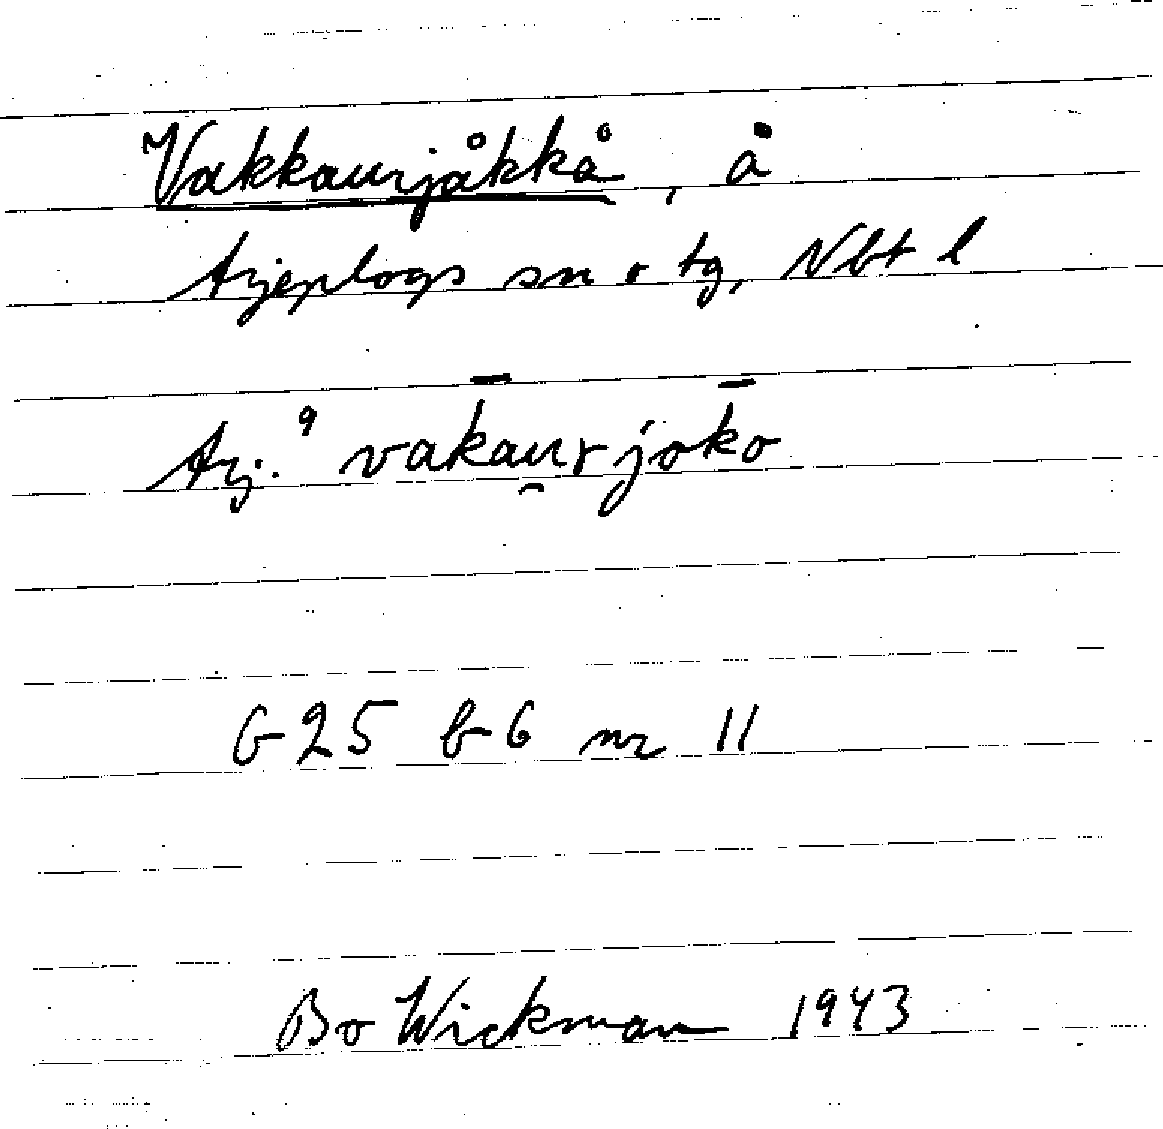 Vakkaurjåkkå, å
Arjeplogs sn o tg, Nbt l
Arj.⁹ vak̄au̯rjok̄o
G 25 b 6 nr 11
Bo Wickman 1943